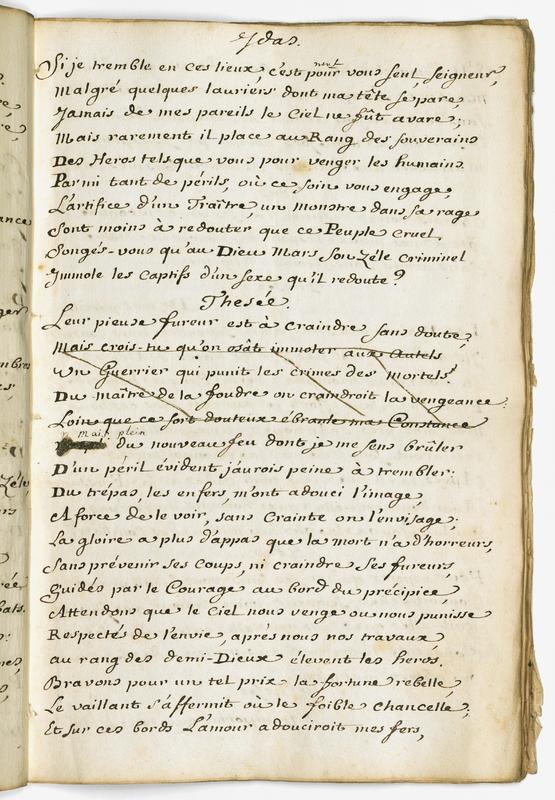 Idas.
Si je tremble en ces lieux, c'est pour vous seul, Seigneur,
Malgré quelques lauriers dont ma tête se pare,
Jamais de mes pareils le Ciel ne fût avare;
Mais rarement il place au Rang des Souverains
Des Heros tels que vous pour venger les humains.
Parmi tant de périls, où ce soin vous engage,
L'artifice d'un Traître, un monstre dans sa rage
Sont moins à redouter que ce Peuple cruel,
Songés-vous qu'au Dieu Mars son Zéle criminel
Immole les Captifs d'un sexe qu'il redoute?
Thesée.
Leur pieuse fureur est à craindre sans doute,
Mais crois-tu qu'on osât immoler aux Autels
Un Guerrier qui punit les crimes des mortels?
Du maître de la foudre on craindroit la vengeance.
Loin que ce sort douteux ébranle ma Constance
mais plein
du nouveau feu dont je me sens brûler
D'un péril évident j'aurois peine à trembler:
Du trépas, les enfers, m'ont adouci l'image,
A force de le voir, sans Crainte on l'envisage;
La gloire a plus d'appas que la mort n'a d'horreurs,
Sans prévenir ses coups, ni craindre ses fureurs,
Guidés par le Courage au bord du précipice,
Attendons que le Ciel nous venge ou nous punisse
Respectés de l'envie, après nous nos travaux,
au rang des demi-Dieux élevent les heros.
Bravons pour un tel prix la fortune rebelle,
Le vaillant s'affermit où le foible Chancelle,
Et sur ces bords L'amour adouciroit mes fers,